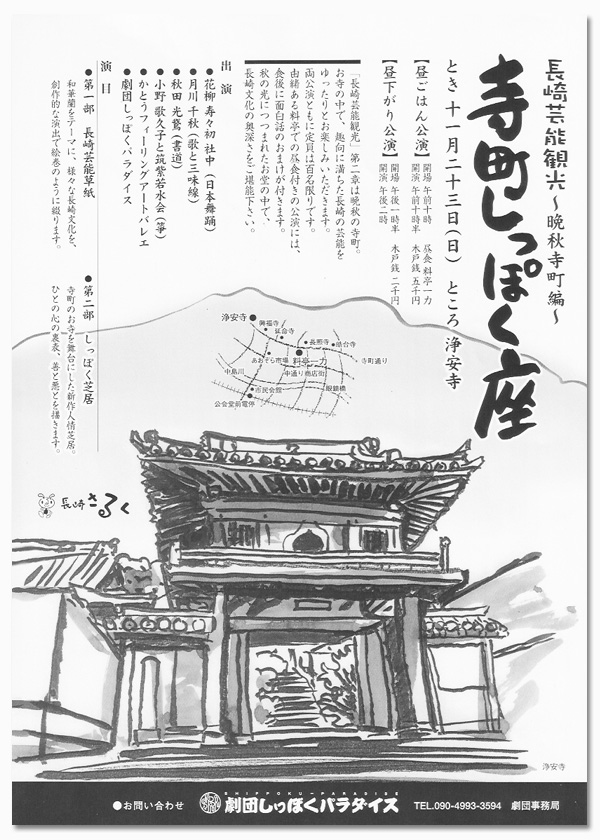 長崎芸能観光〜晩秋寺町編〜
寺町しっぽく座
とき 十一月二十三日(日) ところ 浄安寺
【昼ごはん公演】
開場 午前十時 昼食 料亭一力
開演 午前十時半 木戸銭 五千円
【昼下がり公演】
開場 午後一時半 木戸銭 二千円
開演 午後二時
「長崎芸能観光」第二章は晩秋の寺町。
お寺の中で、趣向に満ちた長崎の芸能を
ゆったりとお楽しみいただきます。
両公演ともに定員は百名限りです。
由緒ある料亭での昼食付きの公演には、
食後に面白話のおまけが付きます。
秋の光につつまれたお堂の中で、
長崎文化の奥深さをご堪能下さい。
出演
●花柳 寿々初 社中(日本舞踊)
●月川 千秋(歌と三味線)
●秋田 光鶩(書道)
●小野 歌久子と筑紫若水会(箏)
●かとうフィーリングアートバレエ
●劇団しっぽくパラダイス
演目
●第一部 長崎芸能草紙
和華蘭をテーマに、様々な長崎文化を、
創作的な演出で絵巻のように綴ります。
●第二部 しっぽく芝居
寺町のお寺を舞台にした新作人情芝居。
ひとの心の裏表、善と悪とを描きます。
浄安寺
興福寺
延命寺
長照寺
皓台寺
あおぞら市場
料亭一力
寺町通り
中島川
中通り商店街
眼鏡橋
市民会館
公会堂前電停
長崎さるく
浄安寺
●お問い合わせ
SHIPPOKU-PARADISE
劇団しっぽくパラダイス
TEL.090-4993-3594 劇団事務局